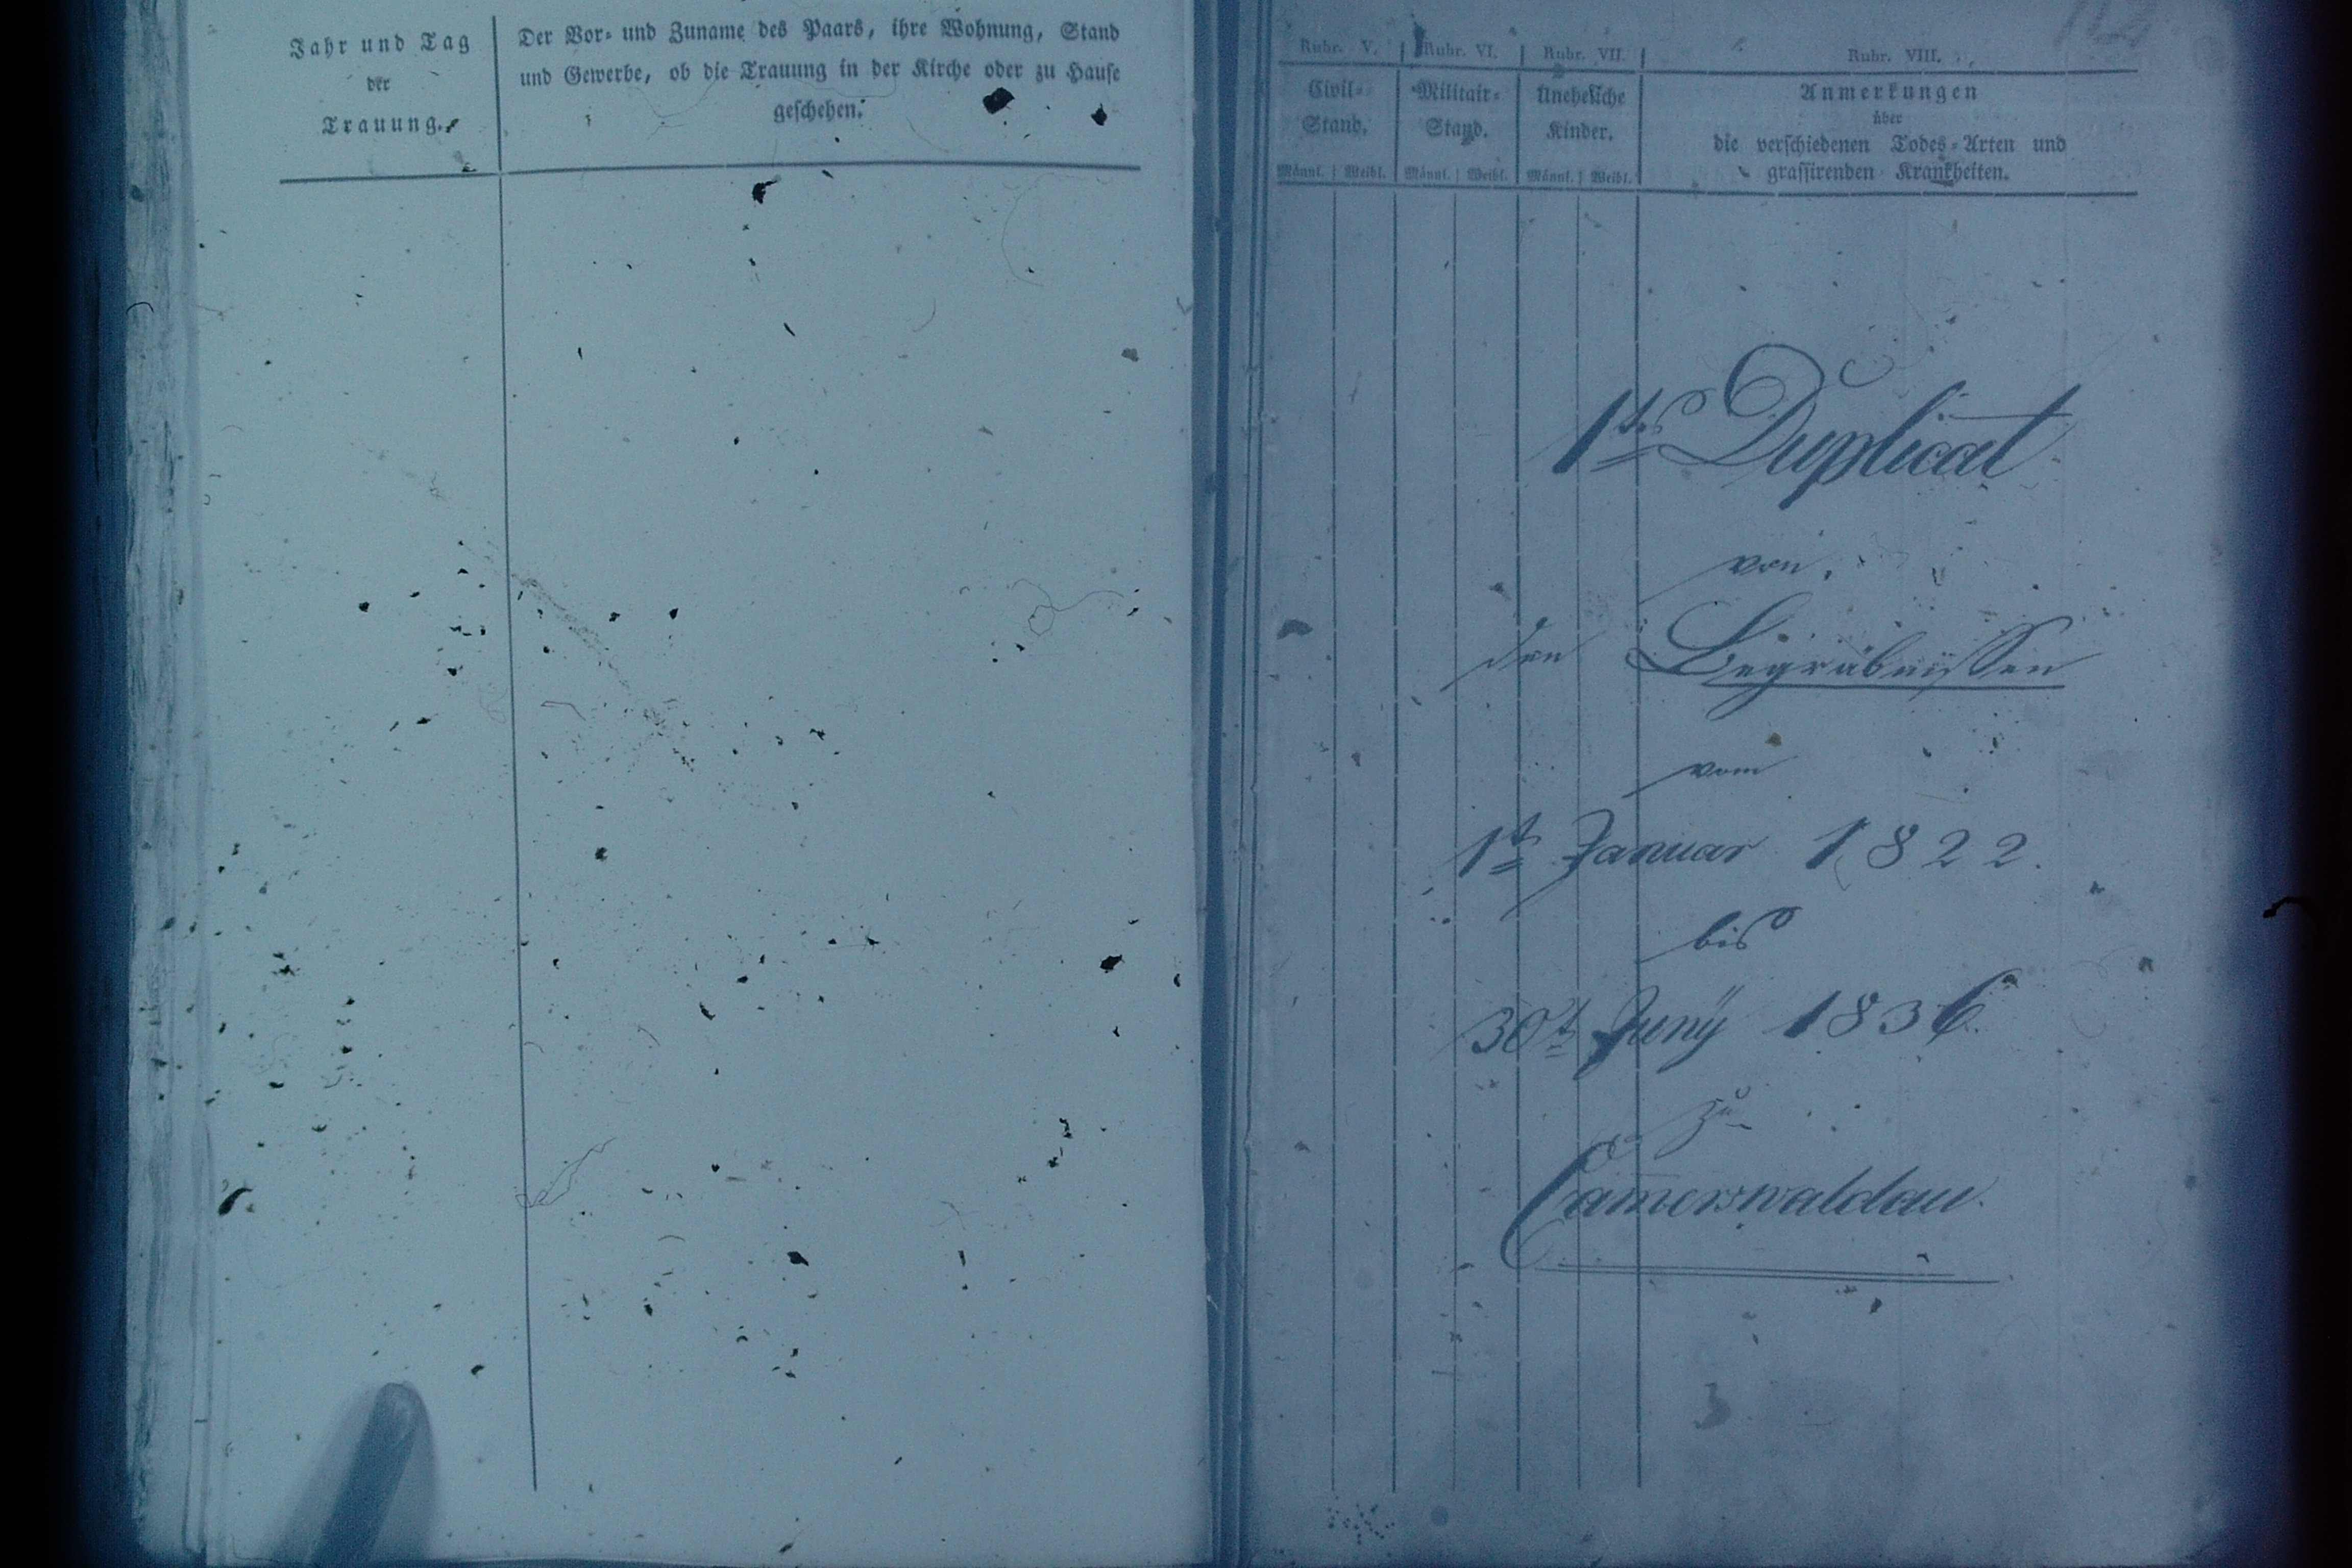 Jahr und Tag
der
Trauung.
Der Vor- und Zuname des Paars, ihre Wohnung, Stand
und Gewerbe, ob die Trauung in der Kirche oder zu Hause
geschehen.
Rubr. V. Rubr. VI. Rubr. VII. Rubr. VIII.
Civil-
Stand.
Militair-
Stand.
Uneheliche
Kinder.
Anmerkungen
über
die verschiedenen Todes-Arten und
grassirenden Krankheiten.
Männl. Weibl. Männl. Weibl. Männl. Weibl.
1tes Duplicat
von
den Begräbnissen
vom
1t Januar 1822.
bis
30t Juny 1836.
zu
Camerswaldau.